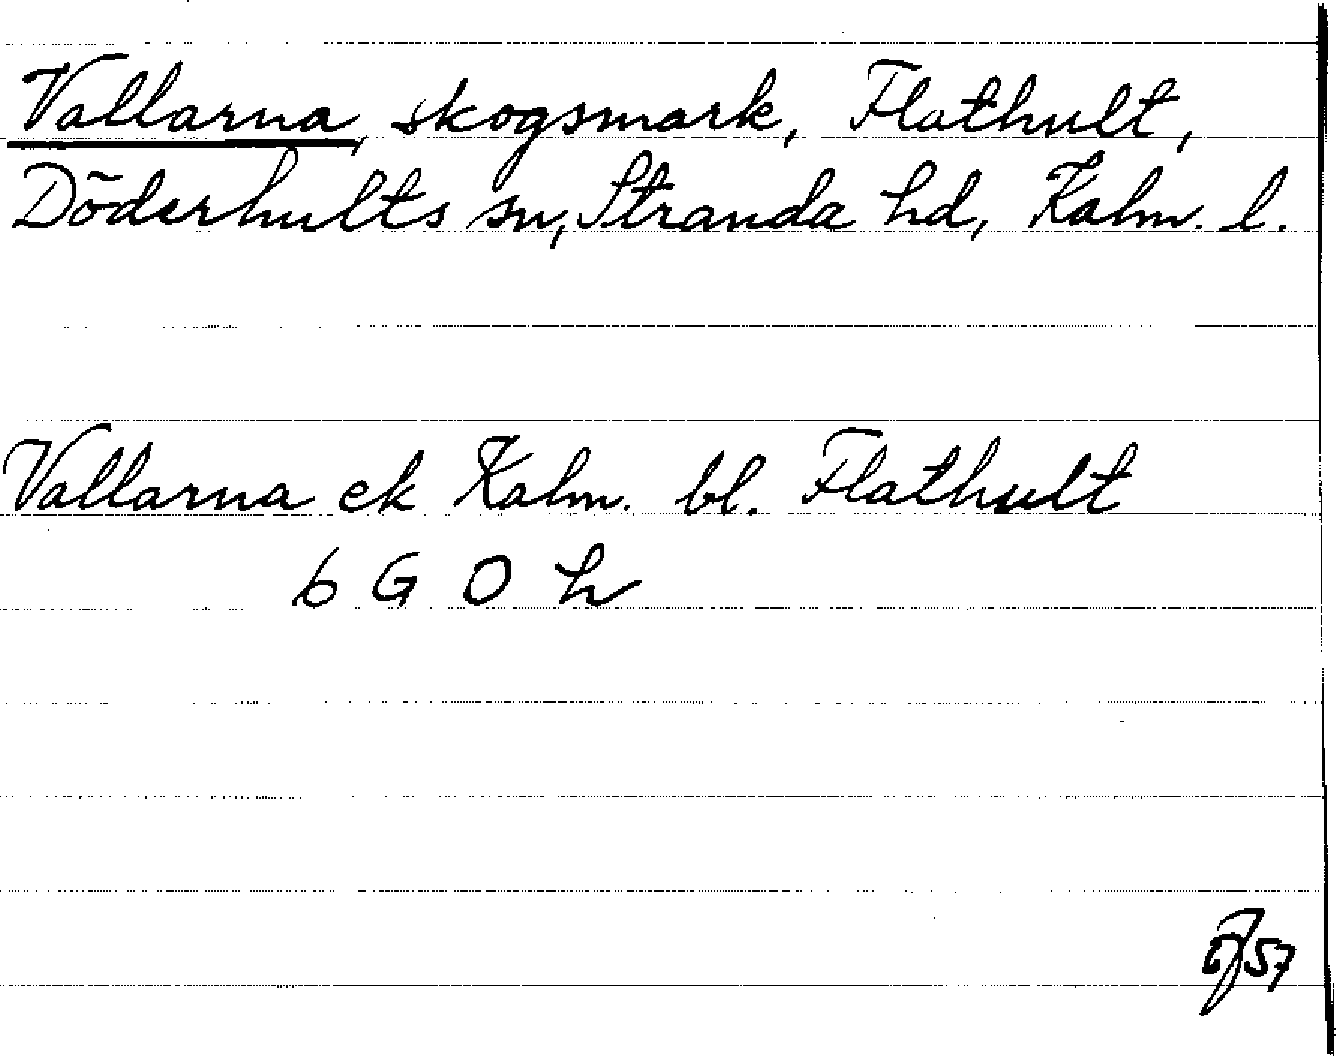 Vallarna, skogsmark, Flathult,
Döderhults sn, Stranda hd, Kalm. l.
Vallarna ek Kalm. bl. Flathult
6 G 0 h
57